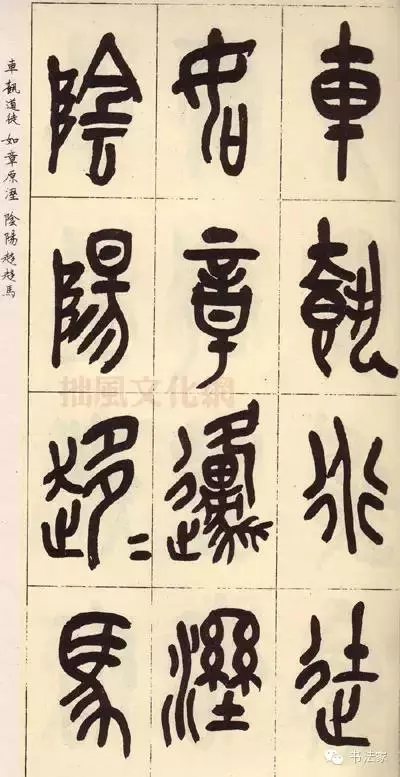 車𩛥行徒
如章邍溼
陰陽趍=馬
車𩛥道徒 如章原溼 陰陽趍趍馬
拙風文化網
书法家